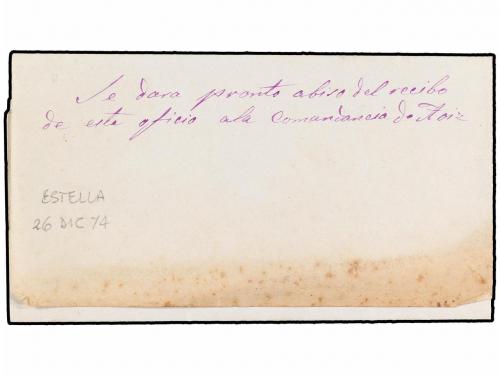 Se dara pronto abiso del recibo
de este oficio a la comandancia de Aoiz
ESTELLA
26 DIC 74